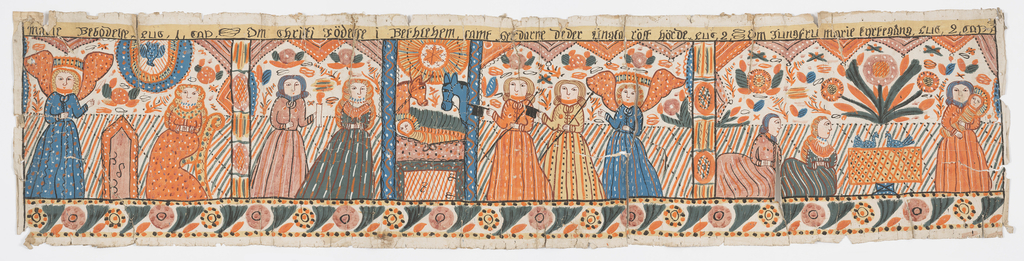 marie Bebådelse Luc 1, cap Om Christi Födelse i Bethlehem, samt herdarne der englar röst hörde, Luc 2 Om Jungfru marie Luc 2 cap